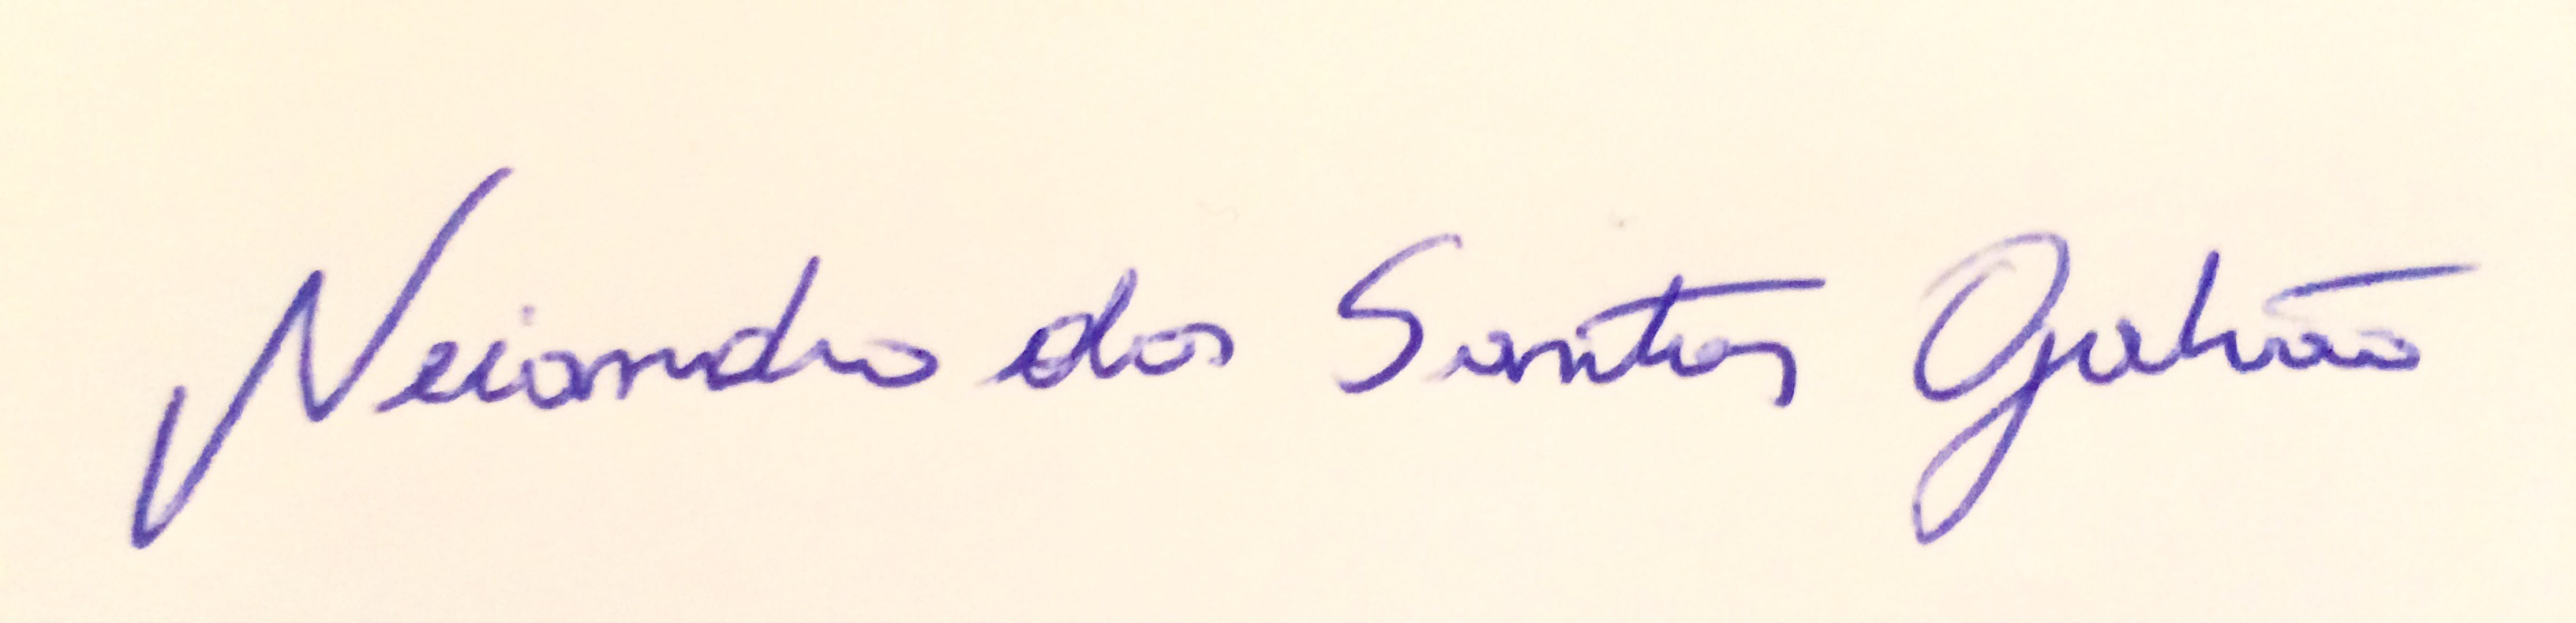 Neiandro dos Santos Galvão